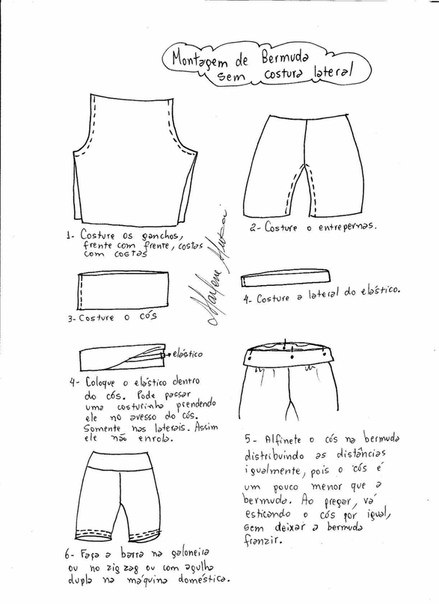 Montagem de Bermuda
sem costura lateral
1- Costure os ganchos,
frente com frente, costas
com costas
2- Costure o entrepernas.
Marlene Mukai
3- Costure o cós
4- Costure a lateral do elástico.
elástico
4- Coloque o elástico dentro
do cós. Pode passar
uma costurinha prendendo
ele no avesso do cós.
Somente nas laterais. Assim
ele não enrola.
5- Alfinete o cós na bermuda
distribuindo as distâncias
igualmente, pois o cós é
um pouco menor que a
bermuda. Ao pregar, vá
esticando o cós por igual,
sem deixar a bermuda
franzir.
6- Faça a barra na galoneira
ou no zigzag ou com agulha
dupla na máquina doméstica.